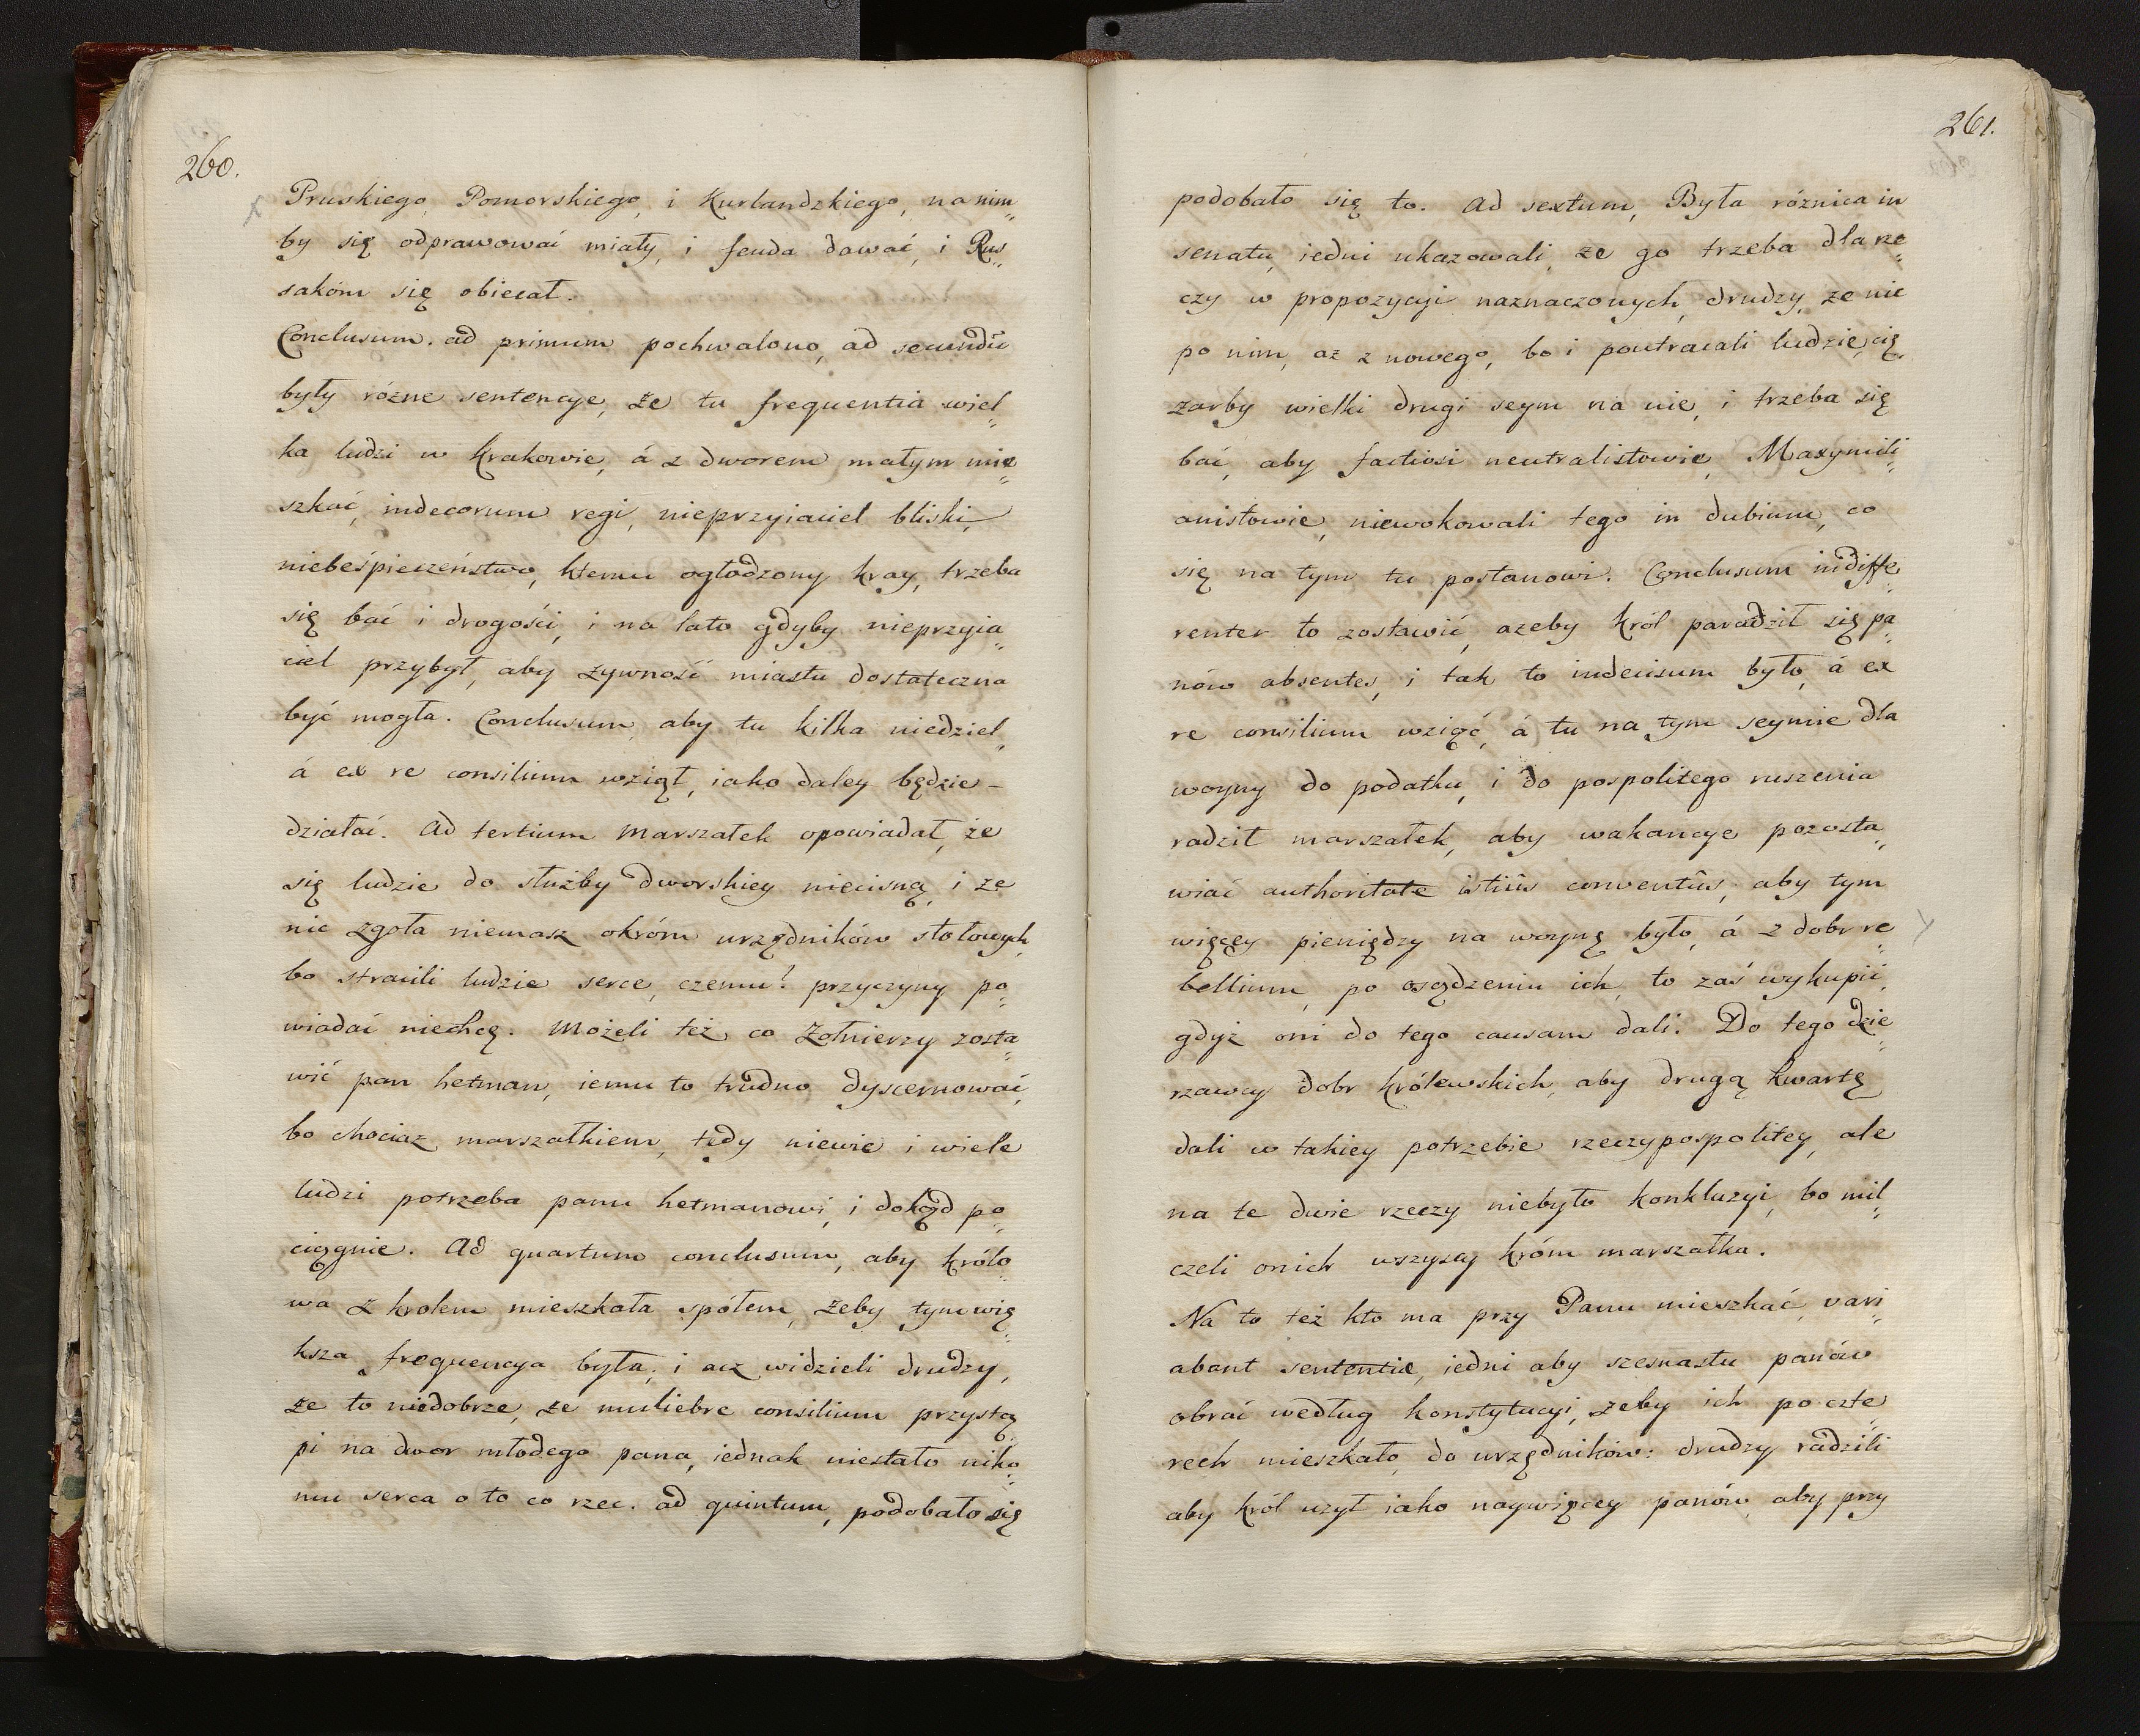 260.
Pruskiego, Pomorskiego, i Kurlandzkiego, na nim„
by się odprawować miały, i feuda dawać, i Rus„
sakóm się obiecał.
Conclusum. ad primum pochwalono, ad secundũ
były rózne sentencye, że tu frequentia wiel„
ka ludzi w Krakowie, á z dworem małym mie„
szkać, indecorum regi, nieprzyiaciel bliski,
niebeśpieczeństwo, ktemu ogłodzony kray, trzeba
się bać i drogości, i na lato gdyby nieprzyia„
ciel przybył, aby żywność miastu dostateczna
być mogła. Conclusum, aby tu kilka niedziel„
á ex re consilium wziął, iako daley będzie –
działać. Ad tertium Marszałek opowiadał, że
się ludzie do służby dworskiey niecisną, i ze
nic zgoła niemasz okróm urzędników stołowych,
bo stracili ludzie serce, czemu? przyczyny po„
wiadać niechcę. Możeli też co Żołnierzy zosta„
wić pan hetman, iemu to trudno dyscernować,
bo chociaz marszałkiem, tedy niewie i wiele
ludzi potrzeba panu hetmanowi, i dokąd po„
ciągnie. Ad quartum conclusum, aby królo„
wa z krolem mieszkała spółem, żeby tym wię„
ksza frequencya była, i acz widzieli drudzy,
że to niedobrze, że muliebre consilium przystą„
pi na dwor młodego pana, iednak niestało niko„
mu serca o to co rzec. ad quintum, podobało się
261.
podobało się to. Ad sextum, Była róznica in
senatu, iedni ukazowali, ze go trzeba dla rze„
czy w propozycyi naznaczonych, drudzy, ze nic
po nim, az z nowego, bo i poutracali ludzie, cię„
żarby wielki drugi seym na nie, i trzeba się
bać, aby factiosi neutralistowie, Maxymili„
anistowie, niewokowali tego in dubium, co
się na tym tu postanowi. Conclusum indiffe„
renter to zostawić, azeby król paradził się pa„
nów absentes, i tak to indecisum było, á ex
re consilium wziąć, á tu na tym seymie dla
woyny do podatku, i do pospolitego ruszenia
radzit marszałek, aby wakancye pozosta„
wiać authoritate istiûs conventûs, aby tym
więcęy pieniędzy na woynę było, á z dobr re„
bellium, po osądzeniu ich, to zaś wykupić,
gdyż oni do tego causam dali. Do tego dzie„
rzawcy dobr królewskich, aby drugą kwartę
dali w takiey potrzebie rzeczypospolitey, ale
na te dwie rzeczy niebyło konkluzyi, bo mil„
czeli onich wszyscy króm marszałka.
Na to też kto ma przy Panu mieszkać, vari„
abant sententie, iedni aby szesnastu panów
obrać według konstytucyi, żeby ich po czte„
rech mieszkało, do urzędników: drudzy radzili
aby król uzył iako naywięcey panów, aby przy